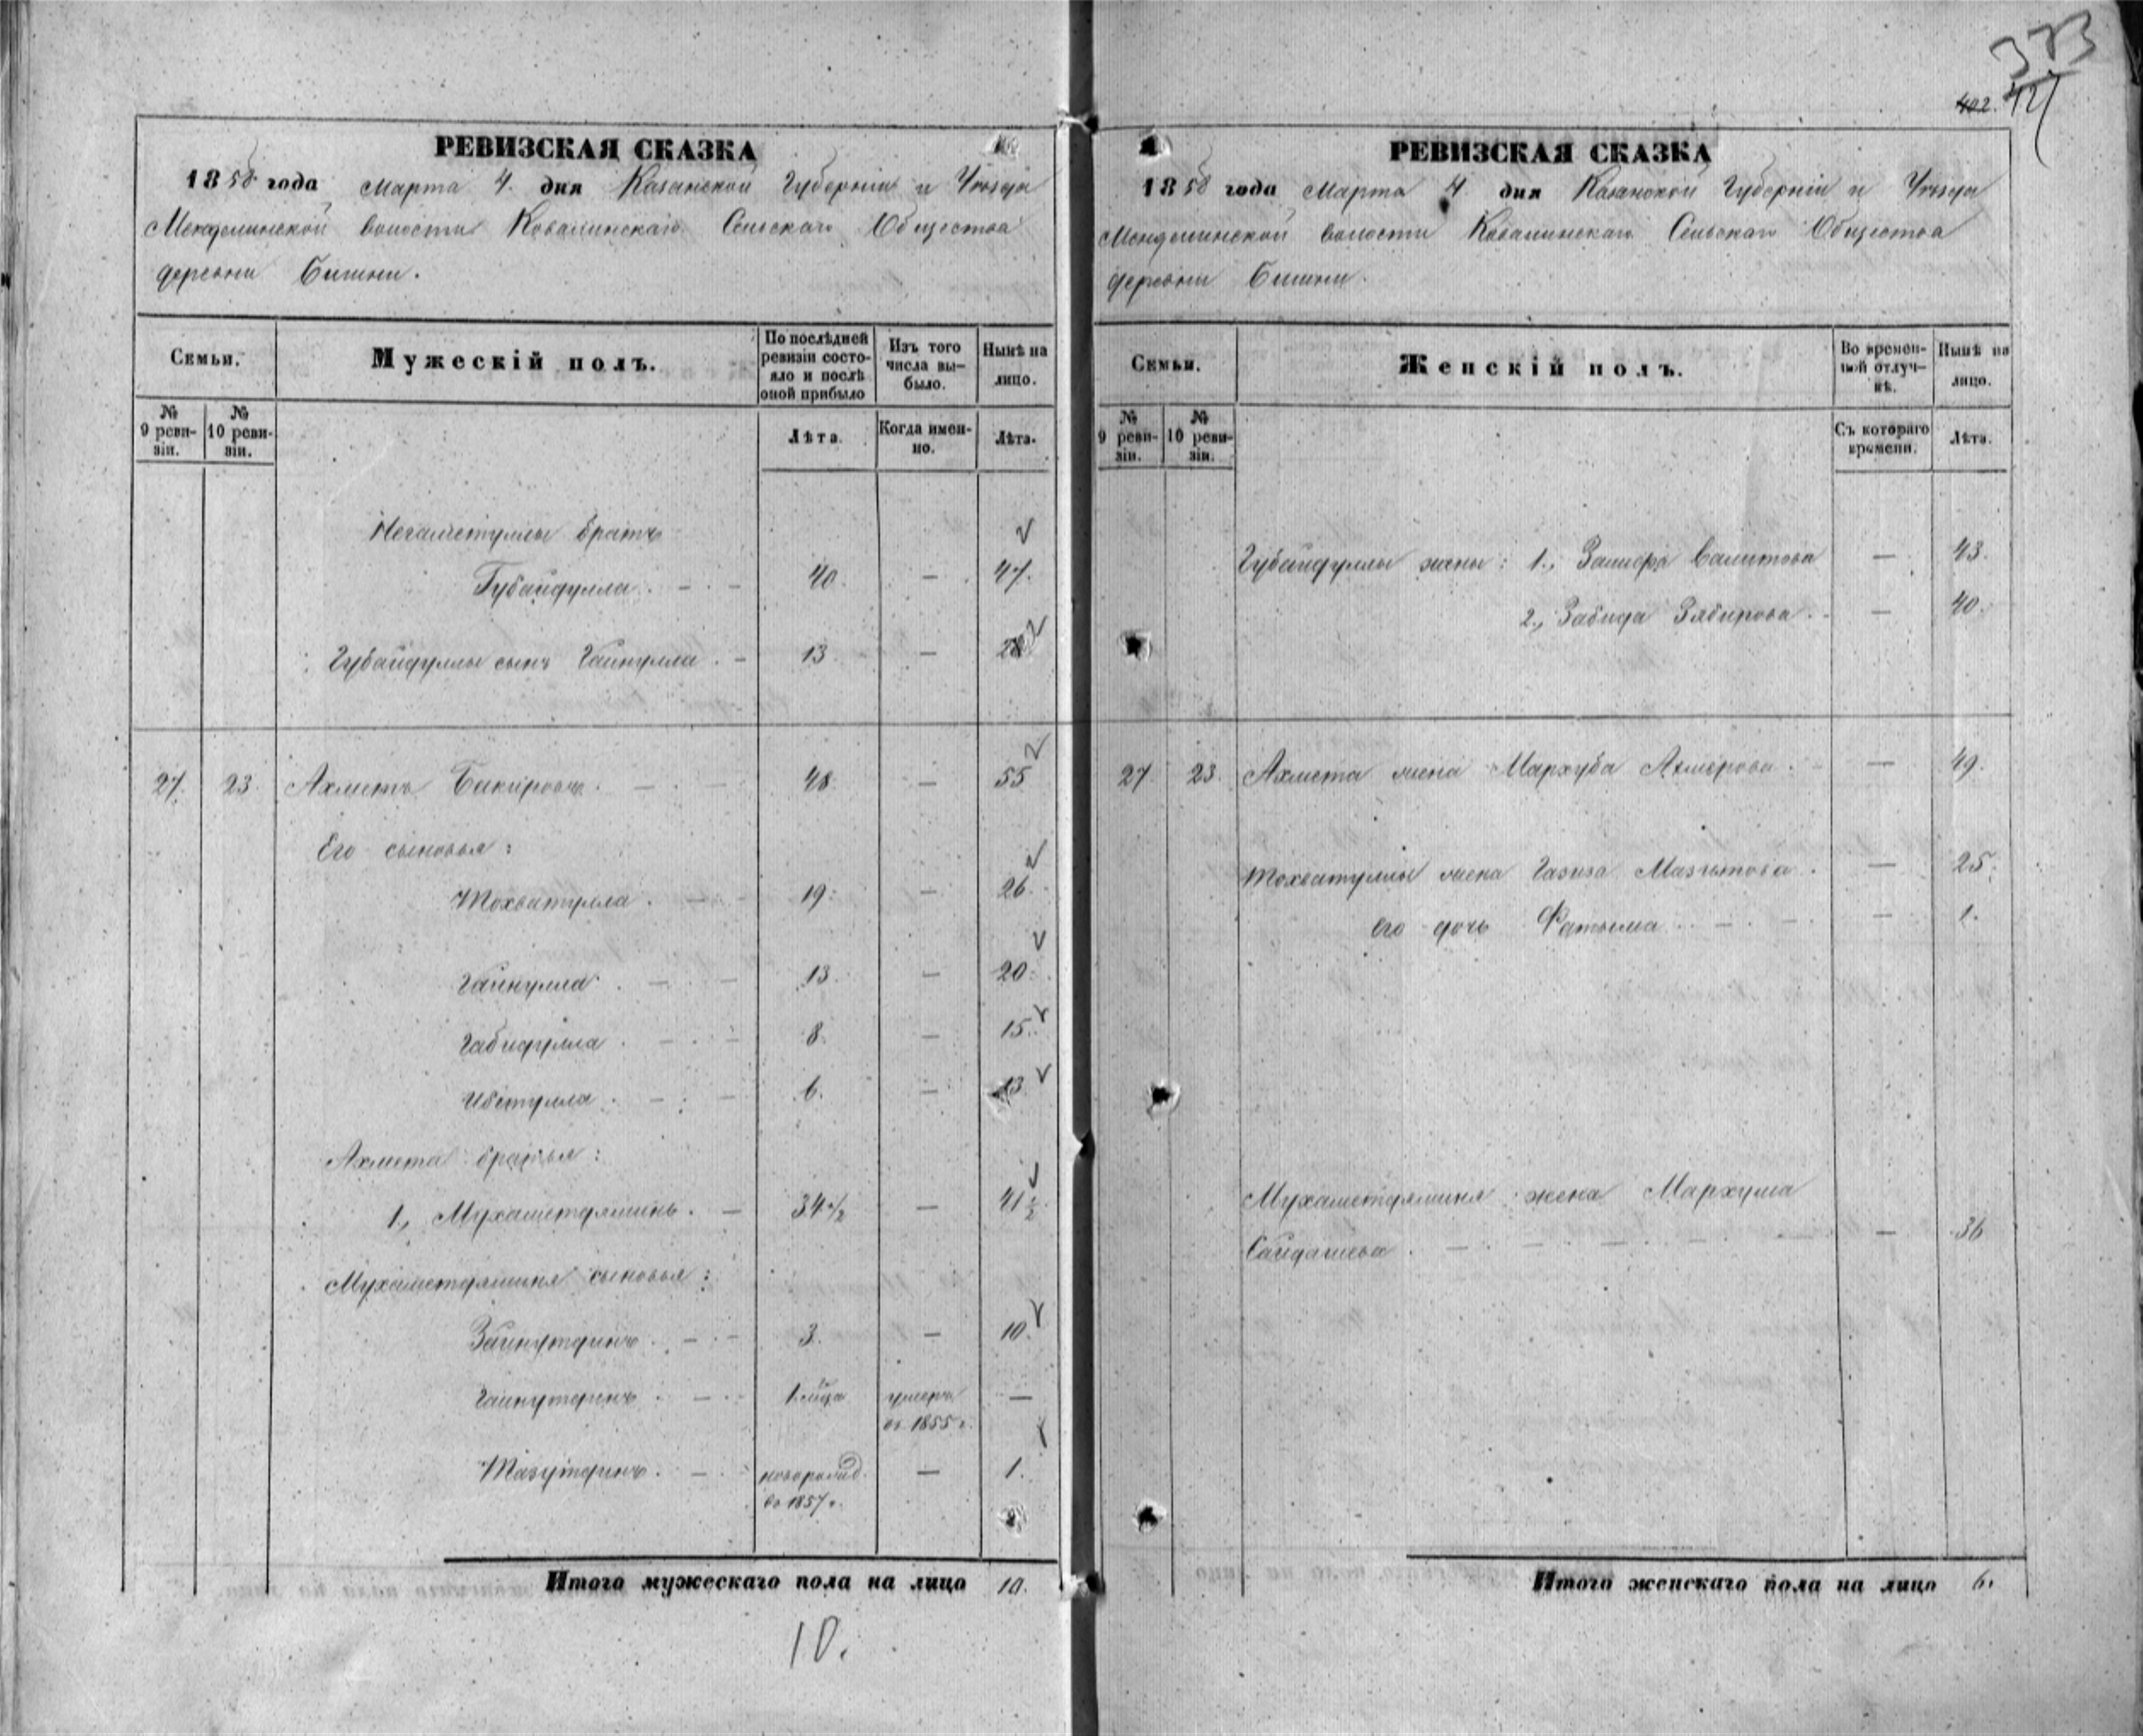 373
402. 421
РЕВИЗСКАЯ СКАЗКА
1858 года Марта 4 дня Казанской Губерніи и Уѣзда
Менделинской волости Ковалинскаго Сельскаго Общества
деревни Бишни.
Семьи.
Мужескій полъ.
По послѣдней ревизіи состояло и послѣ оной прибыло
Изъ того числа выбыло.
Нынѣ на лицо.
№ 9 ревизіи.
№ 10 ревизіи.
Лѣта.
Когда именно.
Лѣта.
Негаметуллы братъ
Губайдулла. 40. — 47.
Губайдуллы сынъ Гайнулла. 13 —
27. 23. Ахметъ Бикировъ. 48 — 55
Его сыновья:
Мохватулла. 19. — 26.
Гайнулла. 13. — 20.
Габидулла. 8. — 15.
Ибетулла. 6. — 13
Ахмета братья:
1., Мухаметзяминь. 34 1/2 — 41 1/2.
Мухаметзяминя сыновья:
Зайнутдинъ. 3. — 10.
Гайнутдинъ. 1 м-ца умеръ —
въ 1855 г.
Мазутдинъ. новорожд. — 1.
въ 1857 г.
Итого мужескаго пола на лицо 10.
10.
РЕВИЗСКАЯ СКАЗКА
1858 года Марта 4 дня Казанской Губерніи и Уѣзда
Менделинской волости Ковалинскаго Сельскаго Общества
деревни Бишни.
Семьи.
Женскій полъ.
Во временной отлучкѣ.
Нынѣ на лицо.
№ 9 ревизіи.
№ 10 ревизіи.
Съ котораго времени.
Лѣта.
Губайдуллы жены: 1., Валитова — 43.
2., Забида Зябирова. — 40.
27. 23. Ахмета жена Мархуба Ахмерова. — 49.
Мохватуллы жена Газиза Мазитова. — 25.
его дочь Фатыма — 1.
Мухаметзяминя жена Мархума
Сайдашева. — 36
Итого женскаго пола на лицо 6.